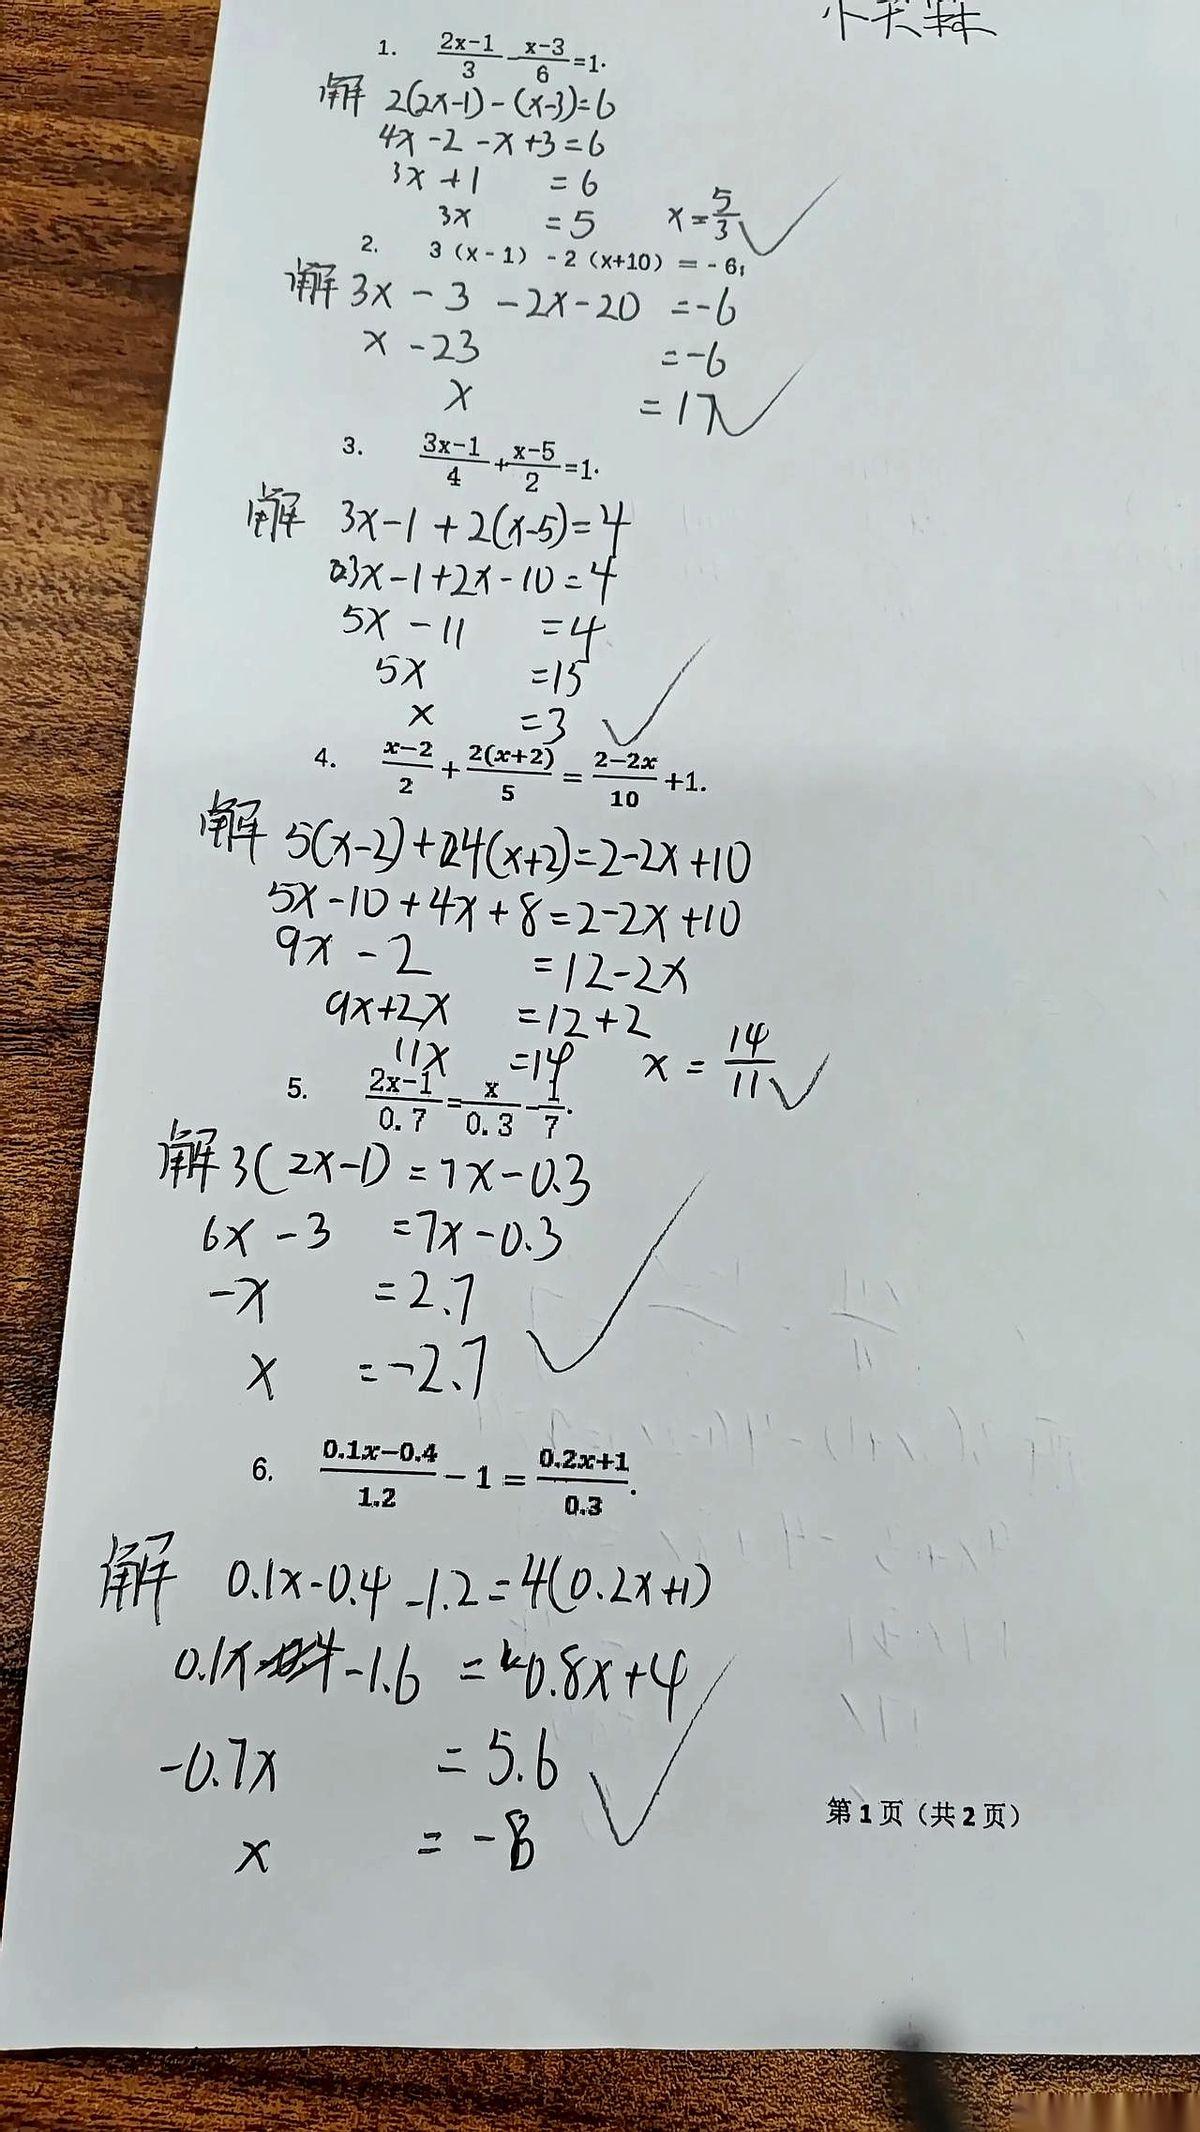 1. \frac{2x-1}{3}-\frac{x-3}{6}=1.
解 2(2x-1)-(x-3)=6
4x-2-x+3=6
3x+1=6
3x=5 x=\frac{5}{3}
2. 3（x-1）-2（x+10）=-6;
解 3x-3-2x-20=-6
x-23=-6
x=17
3. \frac{3x-1}{4}+\frac{x-5}{2}=1.
解 3x-1+2(x-5)=4
3x-1+2x-10=4
5x-11=4
5x=15
x=3
4. \frac{x-2}{2}+\frac{2(x+2)}{5}=\frac{2-2x}{10}+1.
解 5(x-2)+4(x+2)=2-2x+10
5x-10+4x+8=2-2x+10
9x-2=12-2x
9x+2x=12+2
11x=14 x=\frac{14}{11}
5. \frac{2x-1}{0.7}=\frac{x}{0.3}-\frac{1}{7}.
解 3(2x-1)=7x-0.3
6x-3=7x-0.3
-x=2.7
x=-2.7
6. \frac{0.1x-0.4}{1.2}-1=\frac{0.2x+1}{0.3}.
解 0.1x-0.4-1.2=4(0.2x+1)
0.1x-1.6=0.8x+4
-0.7x=5.6
x=-8
第1页（共2页）